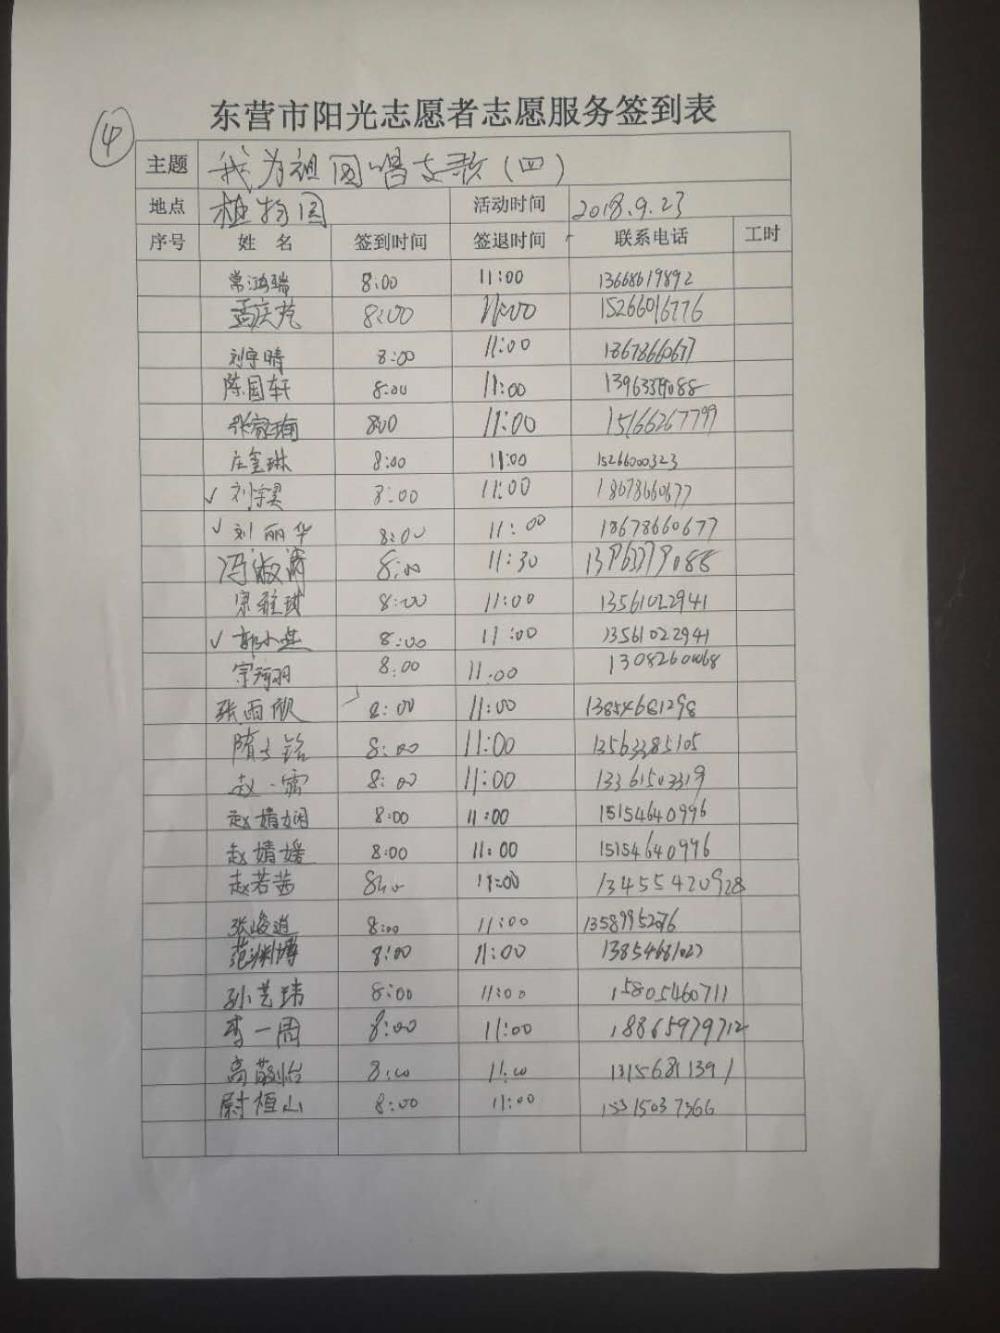 东营市阳光志愿者志愿服务签到表
④
主题 我为祖国唱支歌(四)
地点 植物园 活动时间 2018.9.23
序号 姓名 签到时间 签退时间 联系电话 工时
常鸿瑞 8:00 11:00 13668619892
孟庆芃 8:00 11:00 15266016776
刘宇晴 8:00 11:00 18678660677
陈国轩 8:00 11:00
8:00 11:00 15166267799
庄奎琳 8:00 11:00 15266000323
✓ 刘宇昊 8:00 11:00 18678660677
✓ 刘丽华 8:00 11:00 18678660677
冯淑涛 8:00 11:30 13963379088
宗雅琪 8:00 11:00 13561022941
✓ 郭小燕 8:00 11:00 13561022941
8:00 11:00
张雨欣 8:00 11:00 13854681298
隋子铭 8:00 11:00 13563385105
赵一霈 8:00 11:00 13361503319
赵婧娴 8:00 11:00 15154640996
赵婧媛 8:00 11:00 15154640996
赵若茜 8:00 11:00 13455420928
张峻逍 8:00 11:00 13589995276
范渊博 8:00 11:00
孙艺玮 8:00 11:00 15805460711
李一周 8:00 11:00 18865979712
高敬怡 8:00 11:00 13156811391
尉桓山 8:00 11:00 15315037366